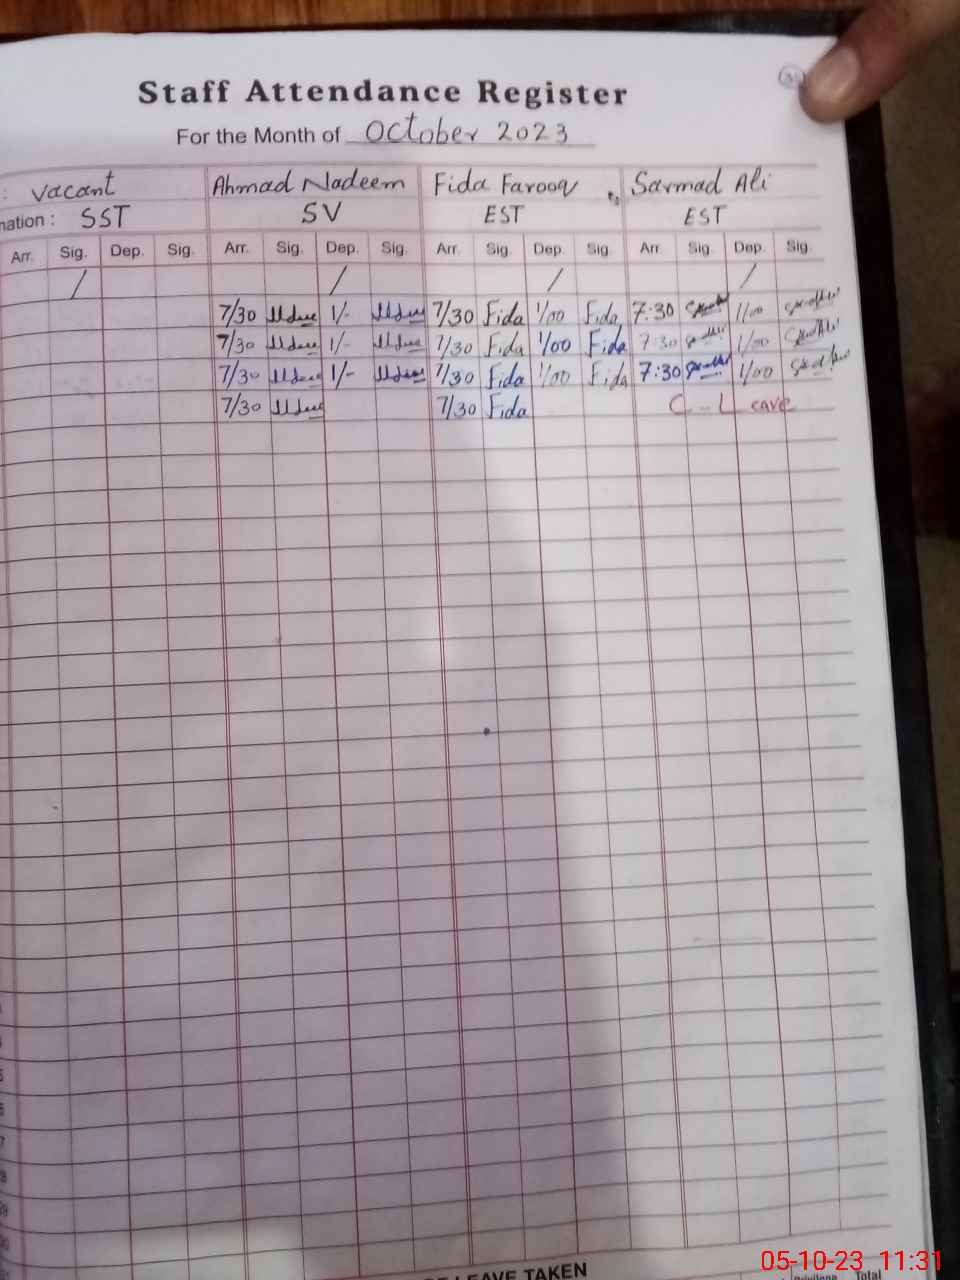 Staff Attendance Register
For the Month of October 2023
: Vacant Ahmad Nadeem Fida Farooq Sarmad Ali
nation : SST SV EST EST
Arr. Sig. Dep. Sig. Arr. Sig. Dep. Sig. Arr. Sig. Dep. Sig. Arr. Sig. Dep. Sig.
/ / / /
7/30 1/- 7/30 Fida 1/00 Fida 7:30 1/00
7/30 1/- 7/30 Fida 1/00 Fida 7:30 1/00
7/30 1/- 7/30 Fida 1/00 Fida 7:30 1/00
7/30 7/30 Fida C - Leave
LEAVE TAKEN
Total
05-10-23 11:31